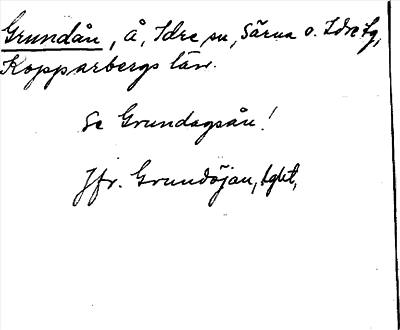 Grundån, å, Idre sn, Särna o. Idre tg,
Kopparbergs län.
Se Grundagsån!
Jfr. Grundöjan, tght,